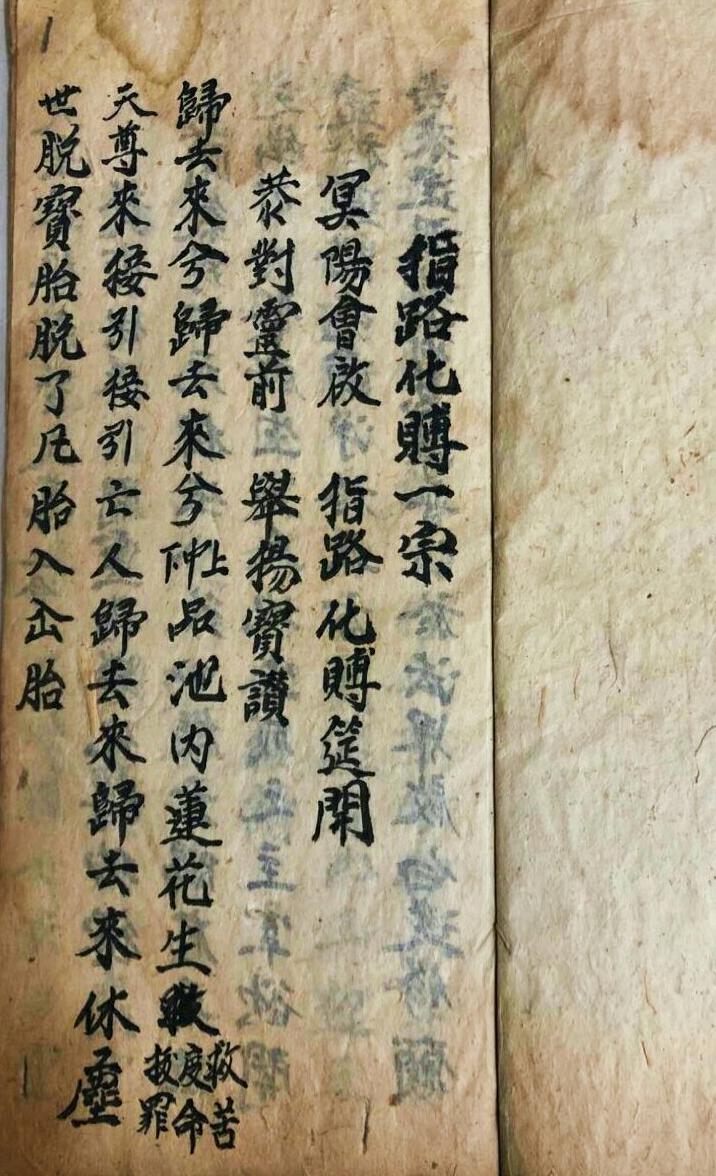 指路化賻一宗
冥陽會啟 指路化賻筵開
恭對靈前 舉揚寶讚
歸去來兮歸去來兮上中下品池内蓮花生救苦度命拔罪
天尊來接引接引亡人歸去來歸去來休塵
世脱寶胎脱了凡胎入仚胎